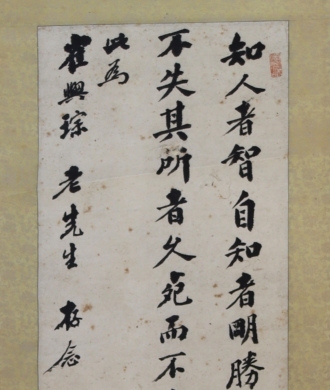 知人者智自知者明勝
不失其所者久死而不
此為
崔興琮 老先生 存念